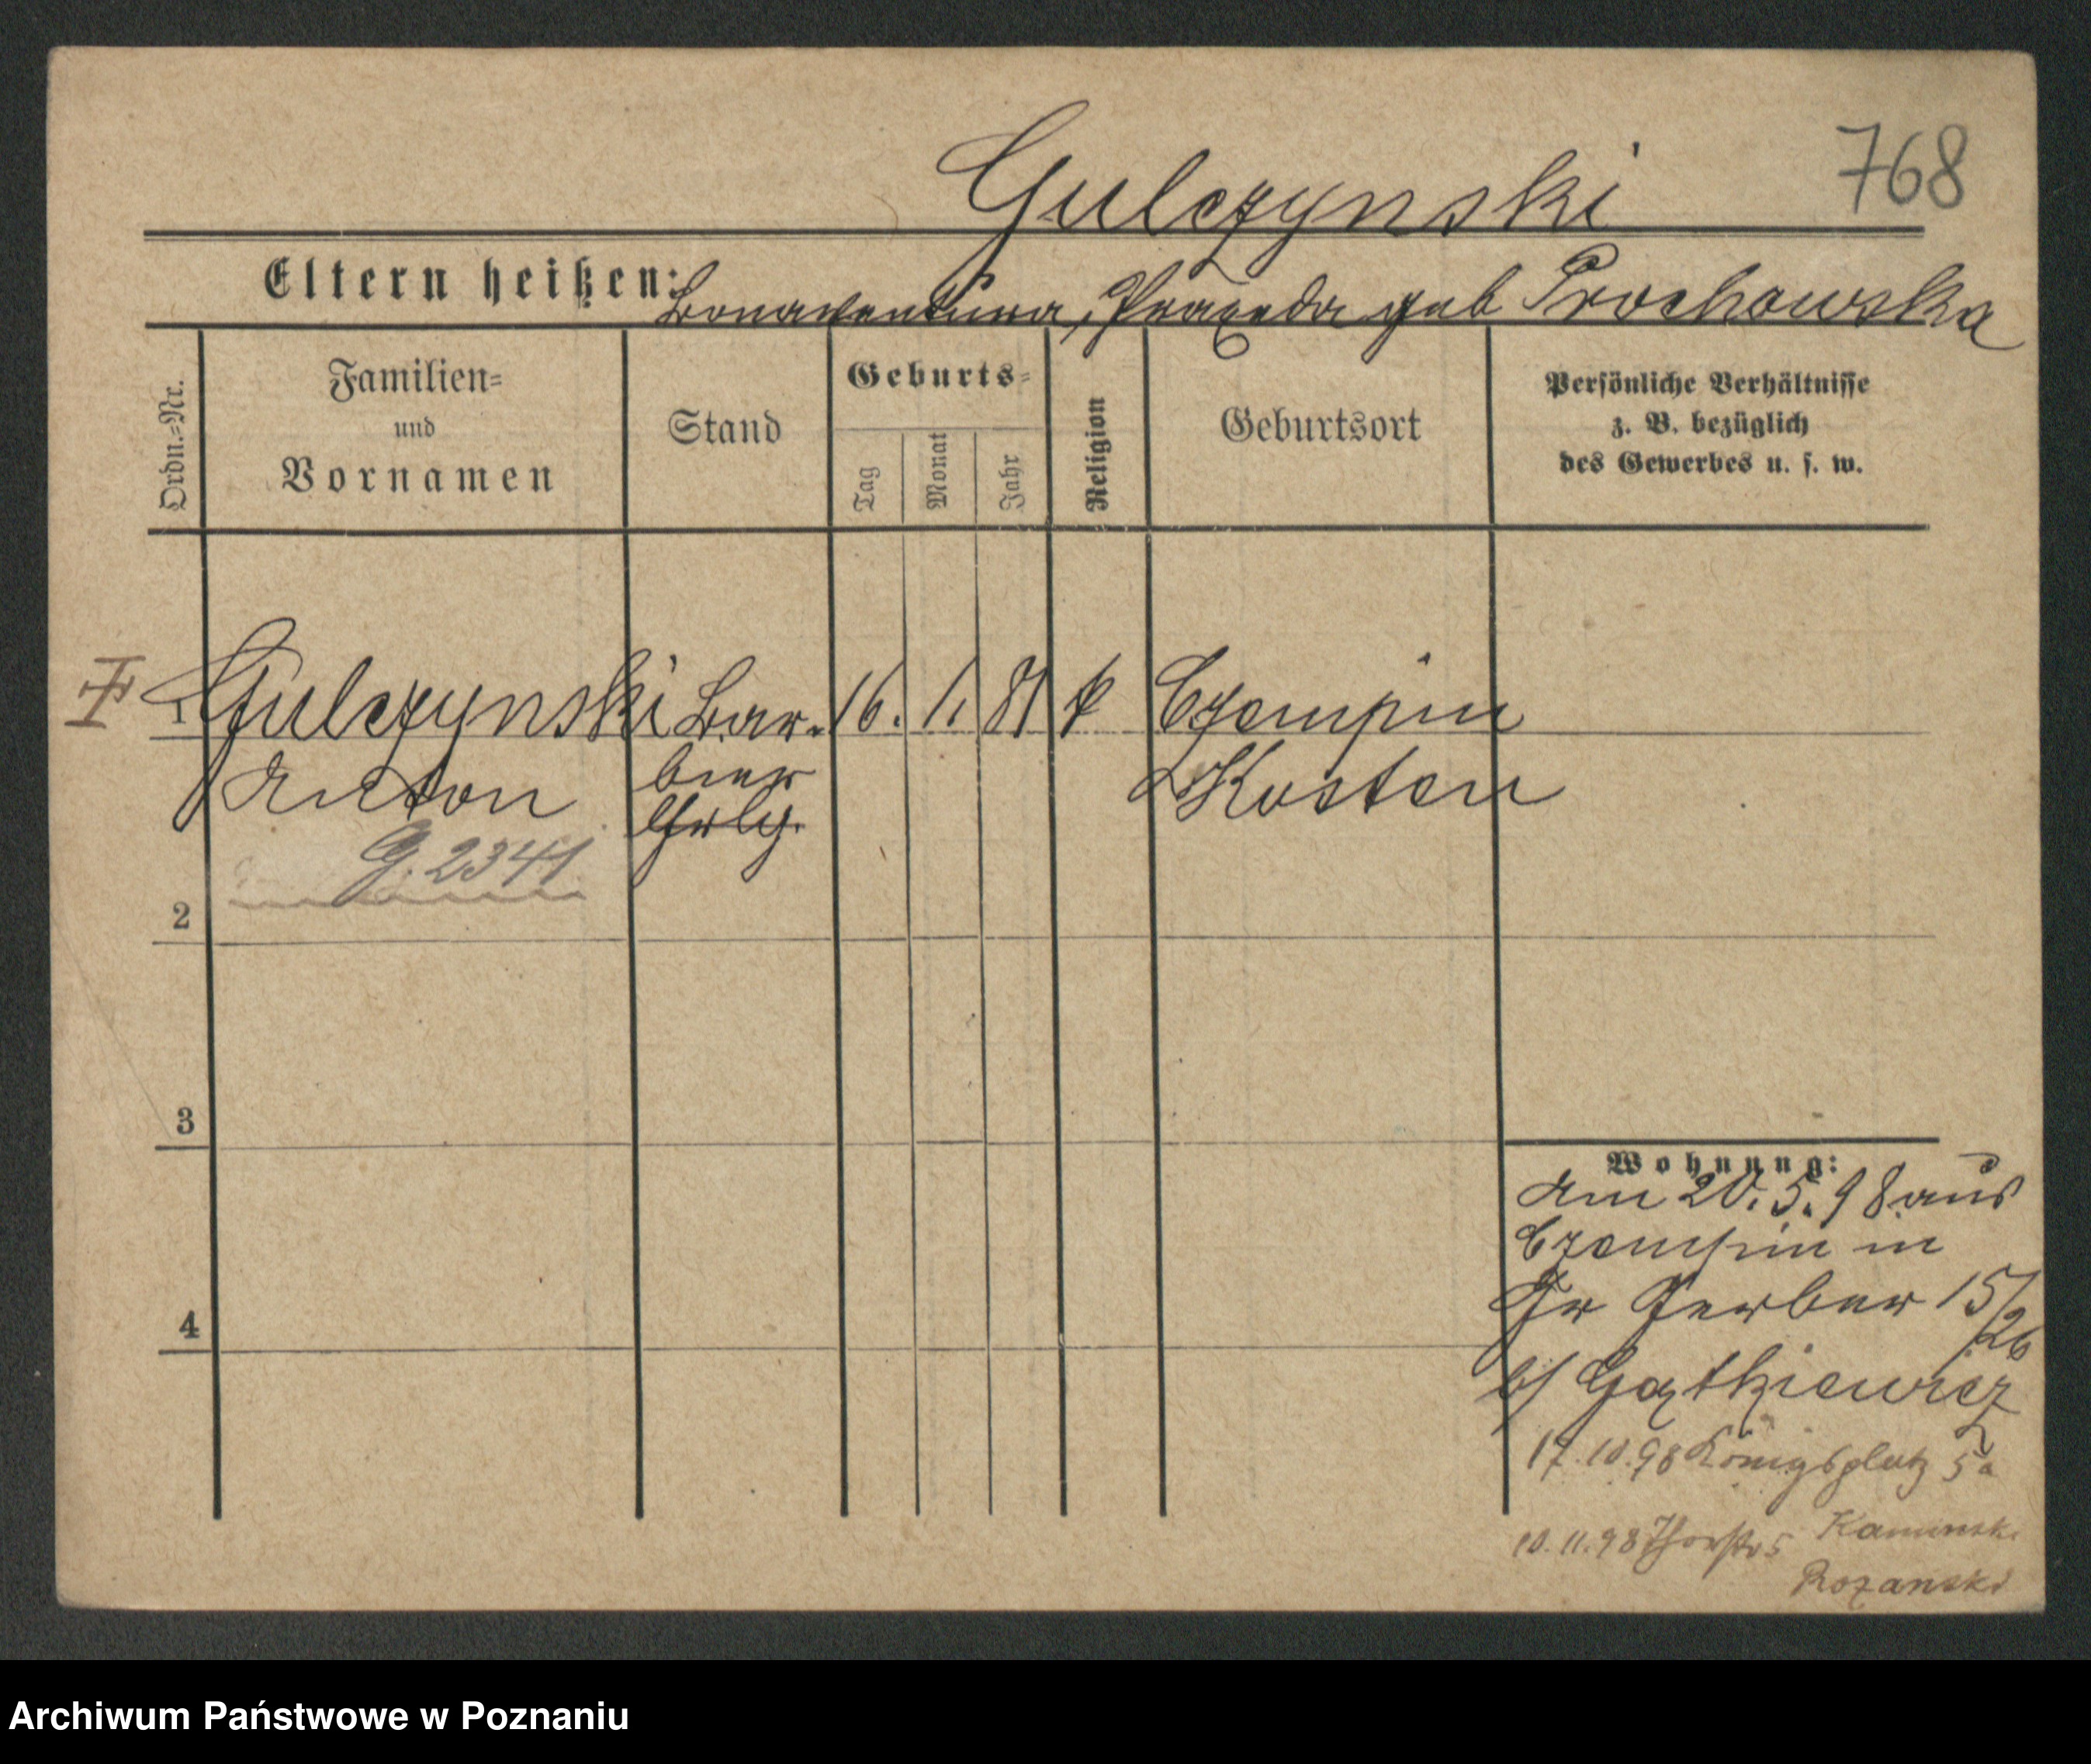 Gulczynski
768
Eltern heißen: Bonaventura, Praxeda geb Prochowska
Ordn.-Nr.
Familien- und Vornamen
Stand
Geburts-
Tag
Monat
Jahr
Religion
Geburtsort
Persönliche Verhältnisse
z. B. bezüglich
des Gewerbes u. s. w.
1 Gulczynski Bar- 16. 1. 81 k Czempin
Anton bier Kosten
G. 2341
2
3
4
Wohnung:
Am 20.5.98 aus
Czempin in
Gr Gerber 15/26
b/
17.10.98 Königsplatz 5a
Kaminski
10.11.98 5
Rozanski
Archiwum Państwowe w Poznaniu